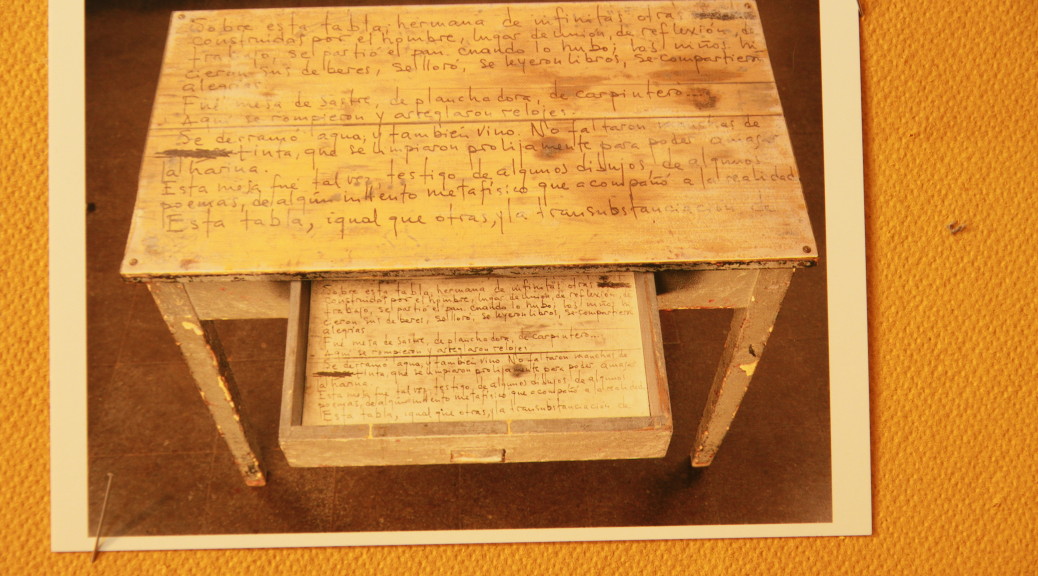 Sobre esta tabla, hermana de infinitas otras
construidas por el hombre, lugar de unión, de reflexión, de
trabajo, se partió el pan cuando lo hubo; los niños hi-
cieron sus deberes, se lloró, se leyeron libros, se compartieron
alegrías.
Fué mesa de sastre, de planchadora, de carpintero...
Aquí se rompieron y arreglaron relojes.
Se derramó agua, y también vino. No faltaron manchas de
tinta, que se limpiaron prolijamente para poder amasar
la harina.
Esta mesa fue tal vez testigo de algunos dibujos, de algunos
poemas, de algún intento metafísico que acompañó a la realidad
Esta tabla, igual que otras, y la transubstanciación de
Sobre esta tabla, hermana de infinitas otras
construidas por el hombre, lugar de unión, de reflexión, de
trabajo, se partió el pan cuando lo hubo; los niños hi-
cieron sus deberes, se lloró, se leyeron libros, se compartieron
alegrías
Fué mesa de sastre, de planchadora, de carpintero...
Aquí se rompieron y arreglaron relojes
Se derramó agua, y también vino. No faltaron manchas de
tinta, que se limpiaron prolijamente para poder amasar
la harina.
Esta mesa fue tal vez testigo de algunos dibujos, de algunos
poemas, de algún intento metafísico que acompañó a la realidad
Esta tabla, igual que otras, y la transubstanciación de